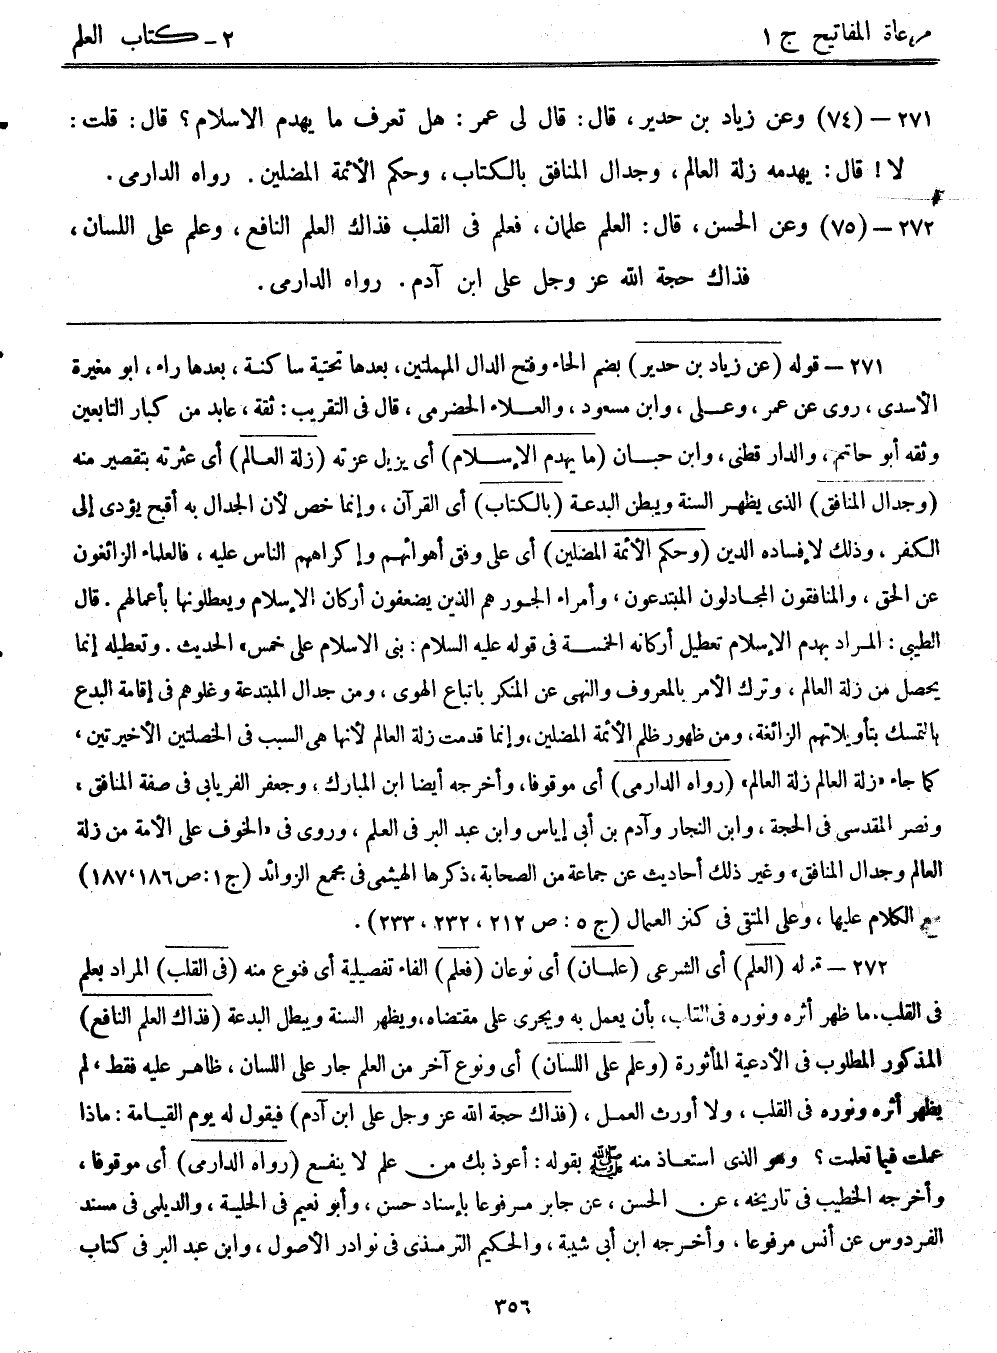 مرعاة المفاتيح ج ١
٢ - كتاب العلم
٢٧١ - (٧٤) وعن زياد بن حدير، قال: قال لى عمر: هل تعرف ما يهدم الاسلام؟ قال: قلت:
لا! قال: يهدمه زلة العالم، وجدال المنافق بالكتاب، وحكم الأئمة المضلين. رواه الدارمى.
٢٧٢ - (٧٥) وعن الحسن، قال: العلم علمان، فعلم فى القلب فذاك العلم النافع، وعلم على اللسان،
فذاك حجة الله عز وجل على ابن آدم. رواه الدارمى.
٢٧١ - قوله (عن زياد بن حدير) بضم الحاء وفتح الدال المهملتين، بعدها تحتية ساكنة، بعدها راء، ابو مغيرة
الأسدى، روى عن عمر، وعلى، وابن مسعود، والعلاء الحضرمى، قال فى التقريب: ثقة، عابد من كبار التابعين
وثقه أبو حاتم، والدار قطنى، وابن حبان (ما يهدم الإسلام) أى يزيل عزته (زلة العالم) أى عثرته بتقصير منه
(وجدال المنافق) الذى يظهر السنة ويبطن البدعة (بالكتاب) أى القرآن، وإنما خص لأن الجدال به أقبح يؤدى إلى
الكفر، وذلك لإفساده الدين (وحكم الأئمة المضلين) أى على وفق أهوائهم وإكراههم الناس عليه، فالعلماء الزائغون
عن الحق، والمنافقون المجادلون المبتدعون، وأمراء الجور هم الذين يضعفون أركان الإسلام ويعطلونها بأعمالهم. قال
الطيبى: المراد بهدم الإسلام تعطيل أركانه الخمسة فى قوله عليه السلام: بنى الاسلام على خمس» الحديث. وتعطيله إنما
يحصل من زلة العالم، وترك الأمر بالمعروف والنهى عن المنكر باتباع الهوى، ومن جدال المبتدعة وغلوهم فى إقامة البدع
بالتمسك بتأويلاتهم الزائغة، ومن ظهور ظلم الأئمة المضلين، وإنما قدمت زلة العالم لأنها هى السبب فى الخصلتين الأخيرتين،
كما جاء «زلة العالم زلة العالم» (رواه الدارمى) أى موقوفا، وأخرجه أيضا ابن المبارك، وجعفر الفريابى فى صفة المنافق،
ونصر المقدسى فى الحجة، وابن النجار وآدم بن أبى إياس وابن عبد البر فى العلم، وروى فى «الخوف على الأمة من زلة
العالم وجدال المنافق» وغير ذلك أحاديث عن جماعة من الصحابة، ذكرها الهيثمى فى مجمع الزوائد (ج ١: ص ١٨٦، ١٨٧)
مع الكلام عليها، وعلى المتقى فى كنز العمال (ج ٥: ص ٢١٢، ٢٣٢، ٢٣٣).
٢٧٢ - قوله (العلم) أى الشرعى (علمان) أى نوعان (فعلم) الفاء تفصيلية أى فنوع منه (فى القلب) المراد بعلم
فى القلب. ما ظهر أثره ونوره فى القلب، بأن يعمل به ويجرى على مقتضاه، ويظهر السنة ويبطل البدعة (فذاك العلم النافع)
المذكور المطلوب فى الأدعية المأثورة (وعلم على اللسان) أى ونوع آخر من العلم جار على اللسان، ظاهر عليه فقط، لم
يظهر أثره ونوره فى القلب، ولا أورث العمل، (فذاك حجة الله عز وجل على ابن آدم) فيقول له يوم القيامة: ماذا
عملت فيما تعلمت؟ وهو الذى استعاذ منه ﷺ بقوله: أعوذ بك من علم لا ينفع (رواه الدارمى) أى موقوفا،
وأخرجه الخطيب فى تاريخه، عن الحسن، عن جابر مرفوعا بإسناد حسن، وأبو نعيم فى الحلية، والديلى فى مسند
الفردوس عن أنس مرفوعا، وأخرجه ابن أبى شيبة، والحكيم الترمذى فى نوادر الأصول، وابن عبد البر فى كتاب
٣٥٦